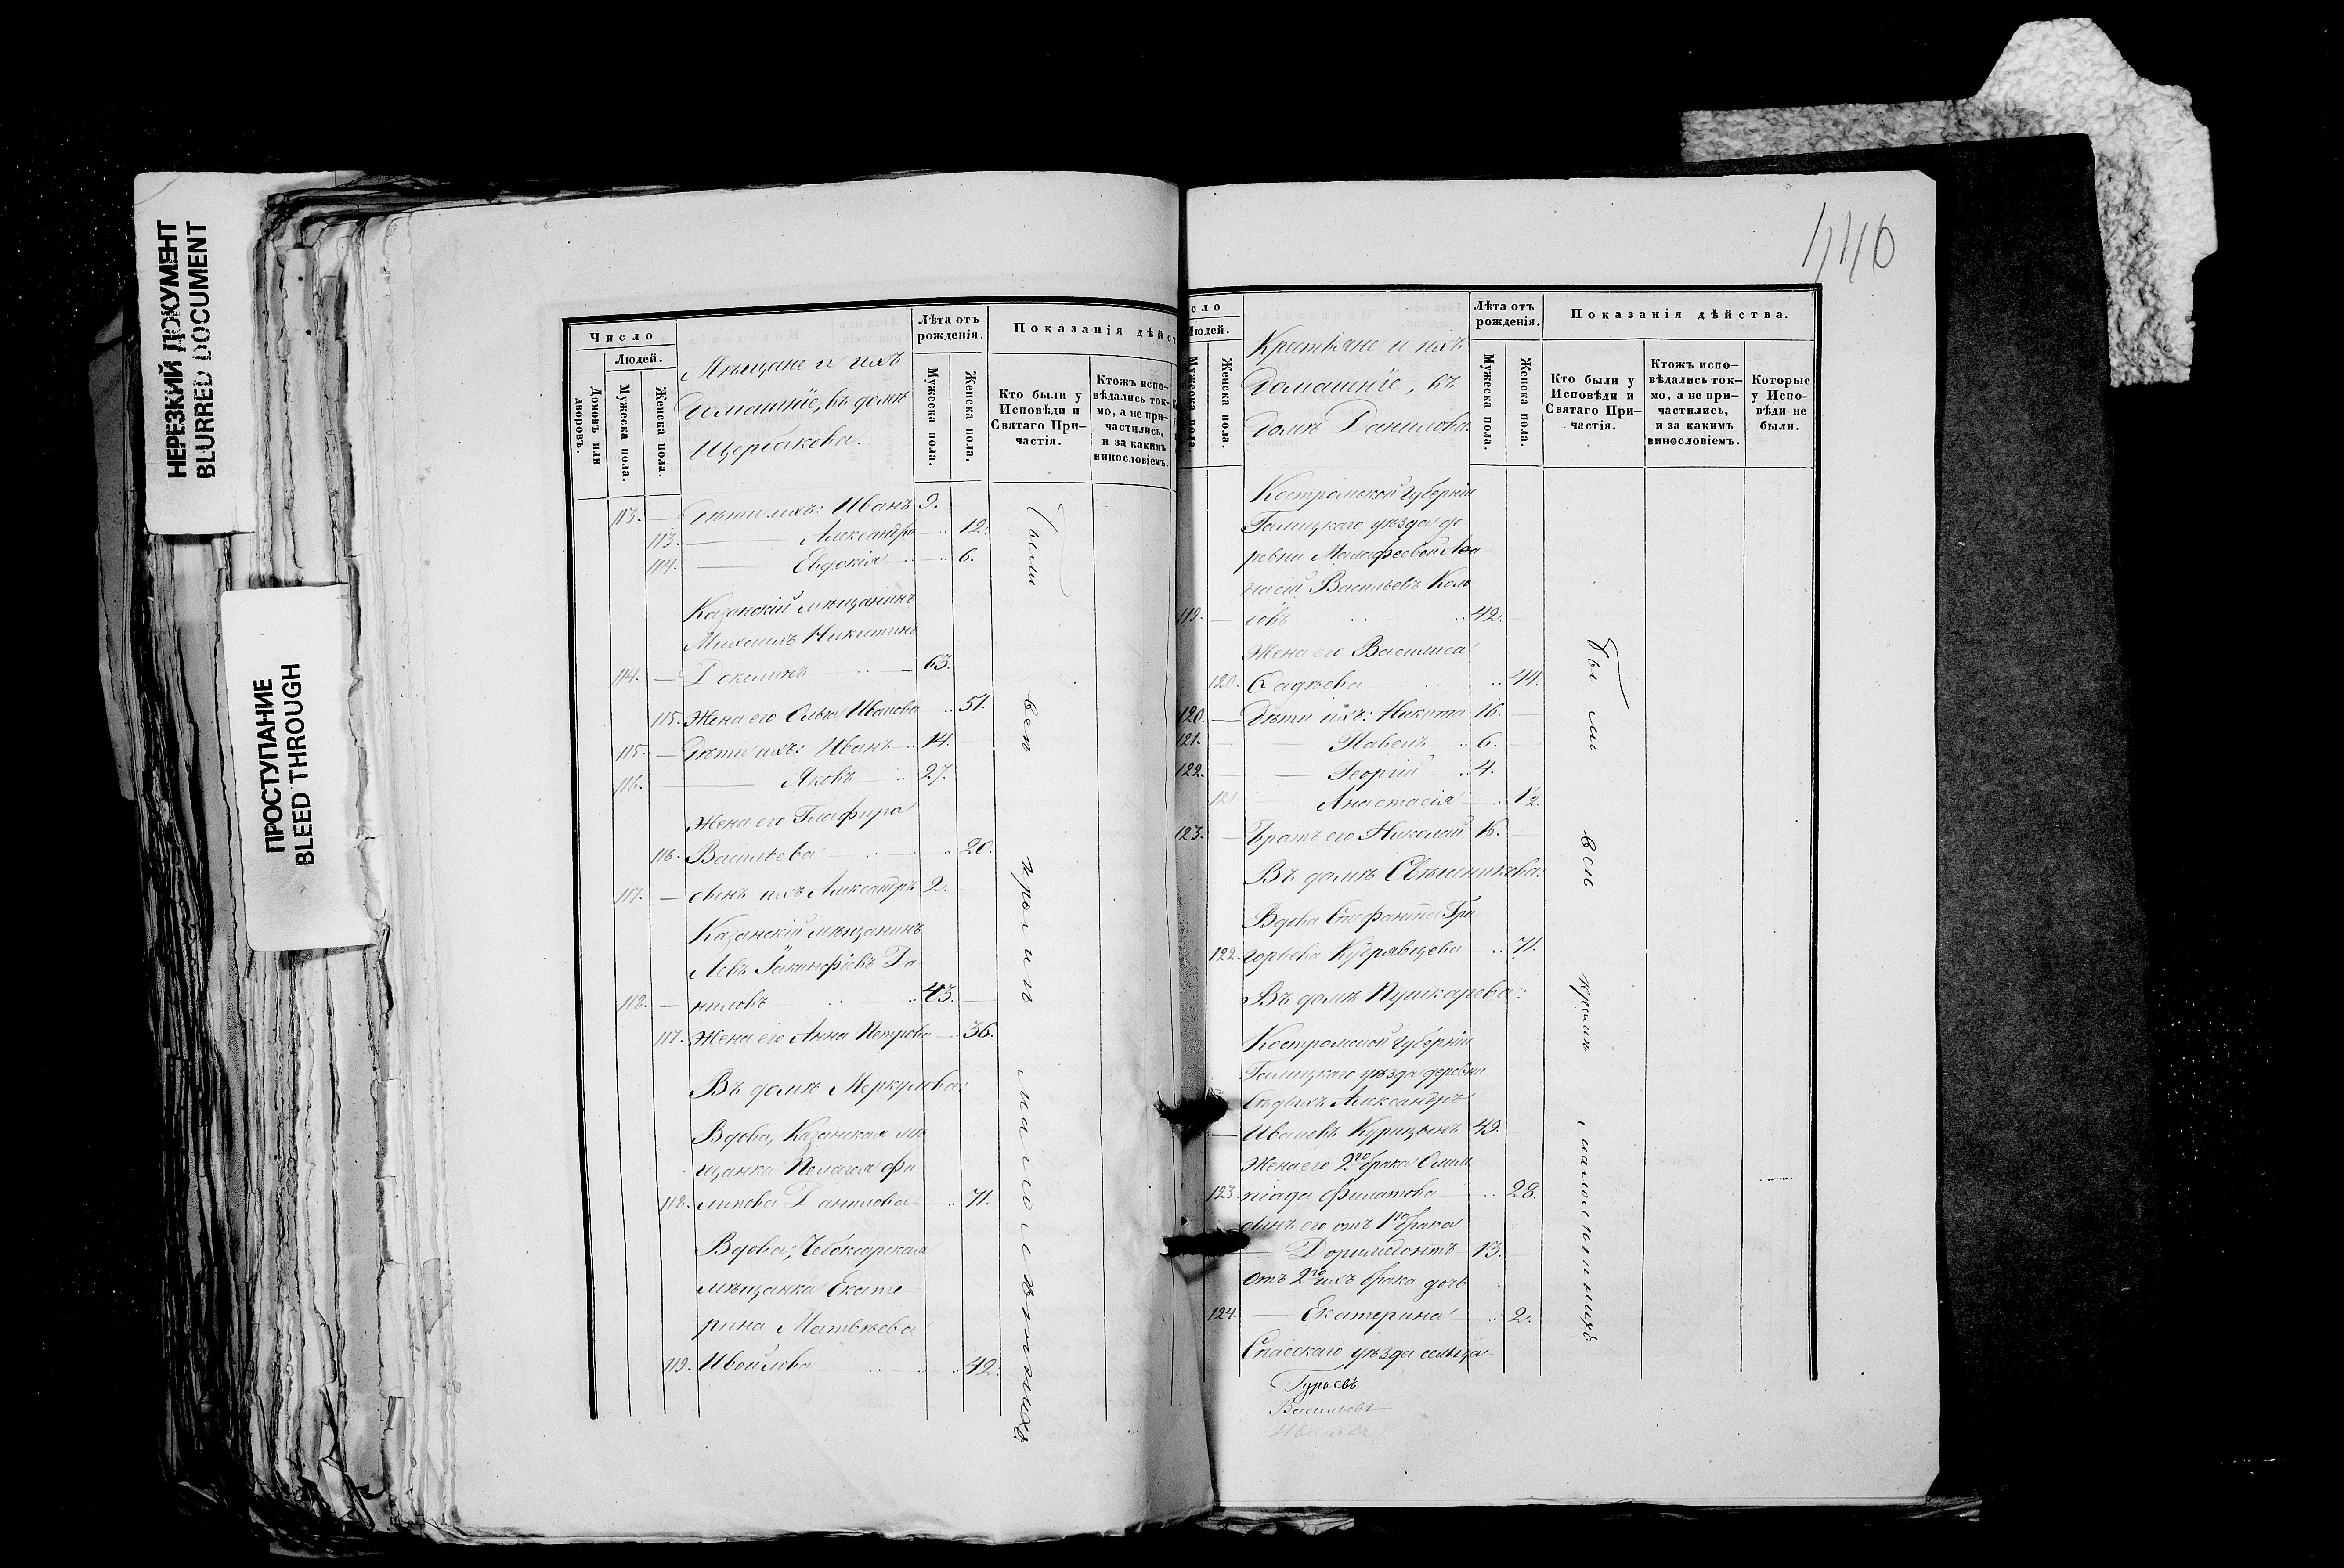 НЕРЕЗКИЙ ДОКУМЕНТ
BLURRED DOCUMENT
ПРОСТУПАНИЕ
BLEED THROUGH
Число
Людей.
Домовъ или дворовъ.
Мужеска пола.
Женска пола.
Мѣщане и ихъ
домашніе, въ домѣ
Щербакова.
Лѣта отъ рожденія.
Мужеска пола.
Женска пола.
Показанія дѣйст
Кто были у Исповѣди и Святаго Причастія.
Ктожъ исповѣдались токмо, а не причастились, и за какимъ винословіемъ.
113. — Дѣти ихъ: Иванъ 9.
113. — Александра — 12.
114. — Евдокія — 6.
Казанскій мѣщанинъ
Михаилъ Никитинъ
114. — 63.
115. Жена его Ольга Иванова 51.
115. — Дѣти ихъ: Иванъ 14.
116. — Яковъ 27.
Жена его Глафира
116. Васильева 20.
117. — Сынъ ихъ Александръ 2.
Казанскій мѣщанинъ
Левъ Іакинфіевъ Да
118. — ниловъ 43.
117. Жена его Анна Петрова 36.
Въ домѣ Меркулова:
Вдова, Казанская мѣ
щанка Пелагея Фи
118. липова Данилова 71.
Вдова, Чебоксарская
мѣщанка Екате
рина Матвѣева
119. Ивойлова 42.
Были всѣ кромѣ малолѣтнихъ
440
сло
Людей.
Мужеска пола.
Женска пола.
Крестьяне и ихъ
домашніе, въ
домѣ Данилова.
Лѣта отъ рожденія.
Мужеска пола.
Женска пола.
Показанія дѣйства.
Кто были у Исповѣди и Святаго Причастія.
Ктожъ исповѣдались токмо, а не причастились, и за какимъ винословіемъ.
Которые у Исповѣди не были.
Костромской Губерніи
Галицкаго уѣзда де
ревни Малафеевой Аѳа
насій Васильевъ Коло
119. — 42.
Жена его Василиса
120. 44.
120. — Дѣти ихъ: Никита 16.
121. — Павелъ 6.
122. — Георгій 4.
121. Анастасія 1½.
123. — Братъ его Николай 16.
Въ домѣ Свѣшникова:
Вдова Стефанида Гри
122. горьева Кудрявцева 71.
Въ домѣ Пушкарева:
Костромской Губерніи
Галицкаго уѣзда деревни
Александръ
— Ивановъ Курицынъ 49.
Жена его 2го брака Олим
123. піада Филатова 28.
Сынъ его отъ 1го брака
— Доримедонтъ 13.
Отъ 2го ихъ брака дочь
124. — Екатерина 2.
Спасскаго уѣзда сельца
Гурьевъ
Васильевъ
Были всѣ кромѣ малолѣтнихъ